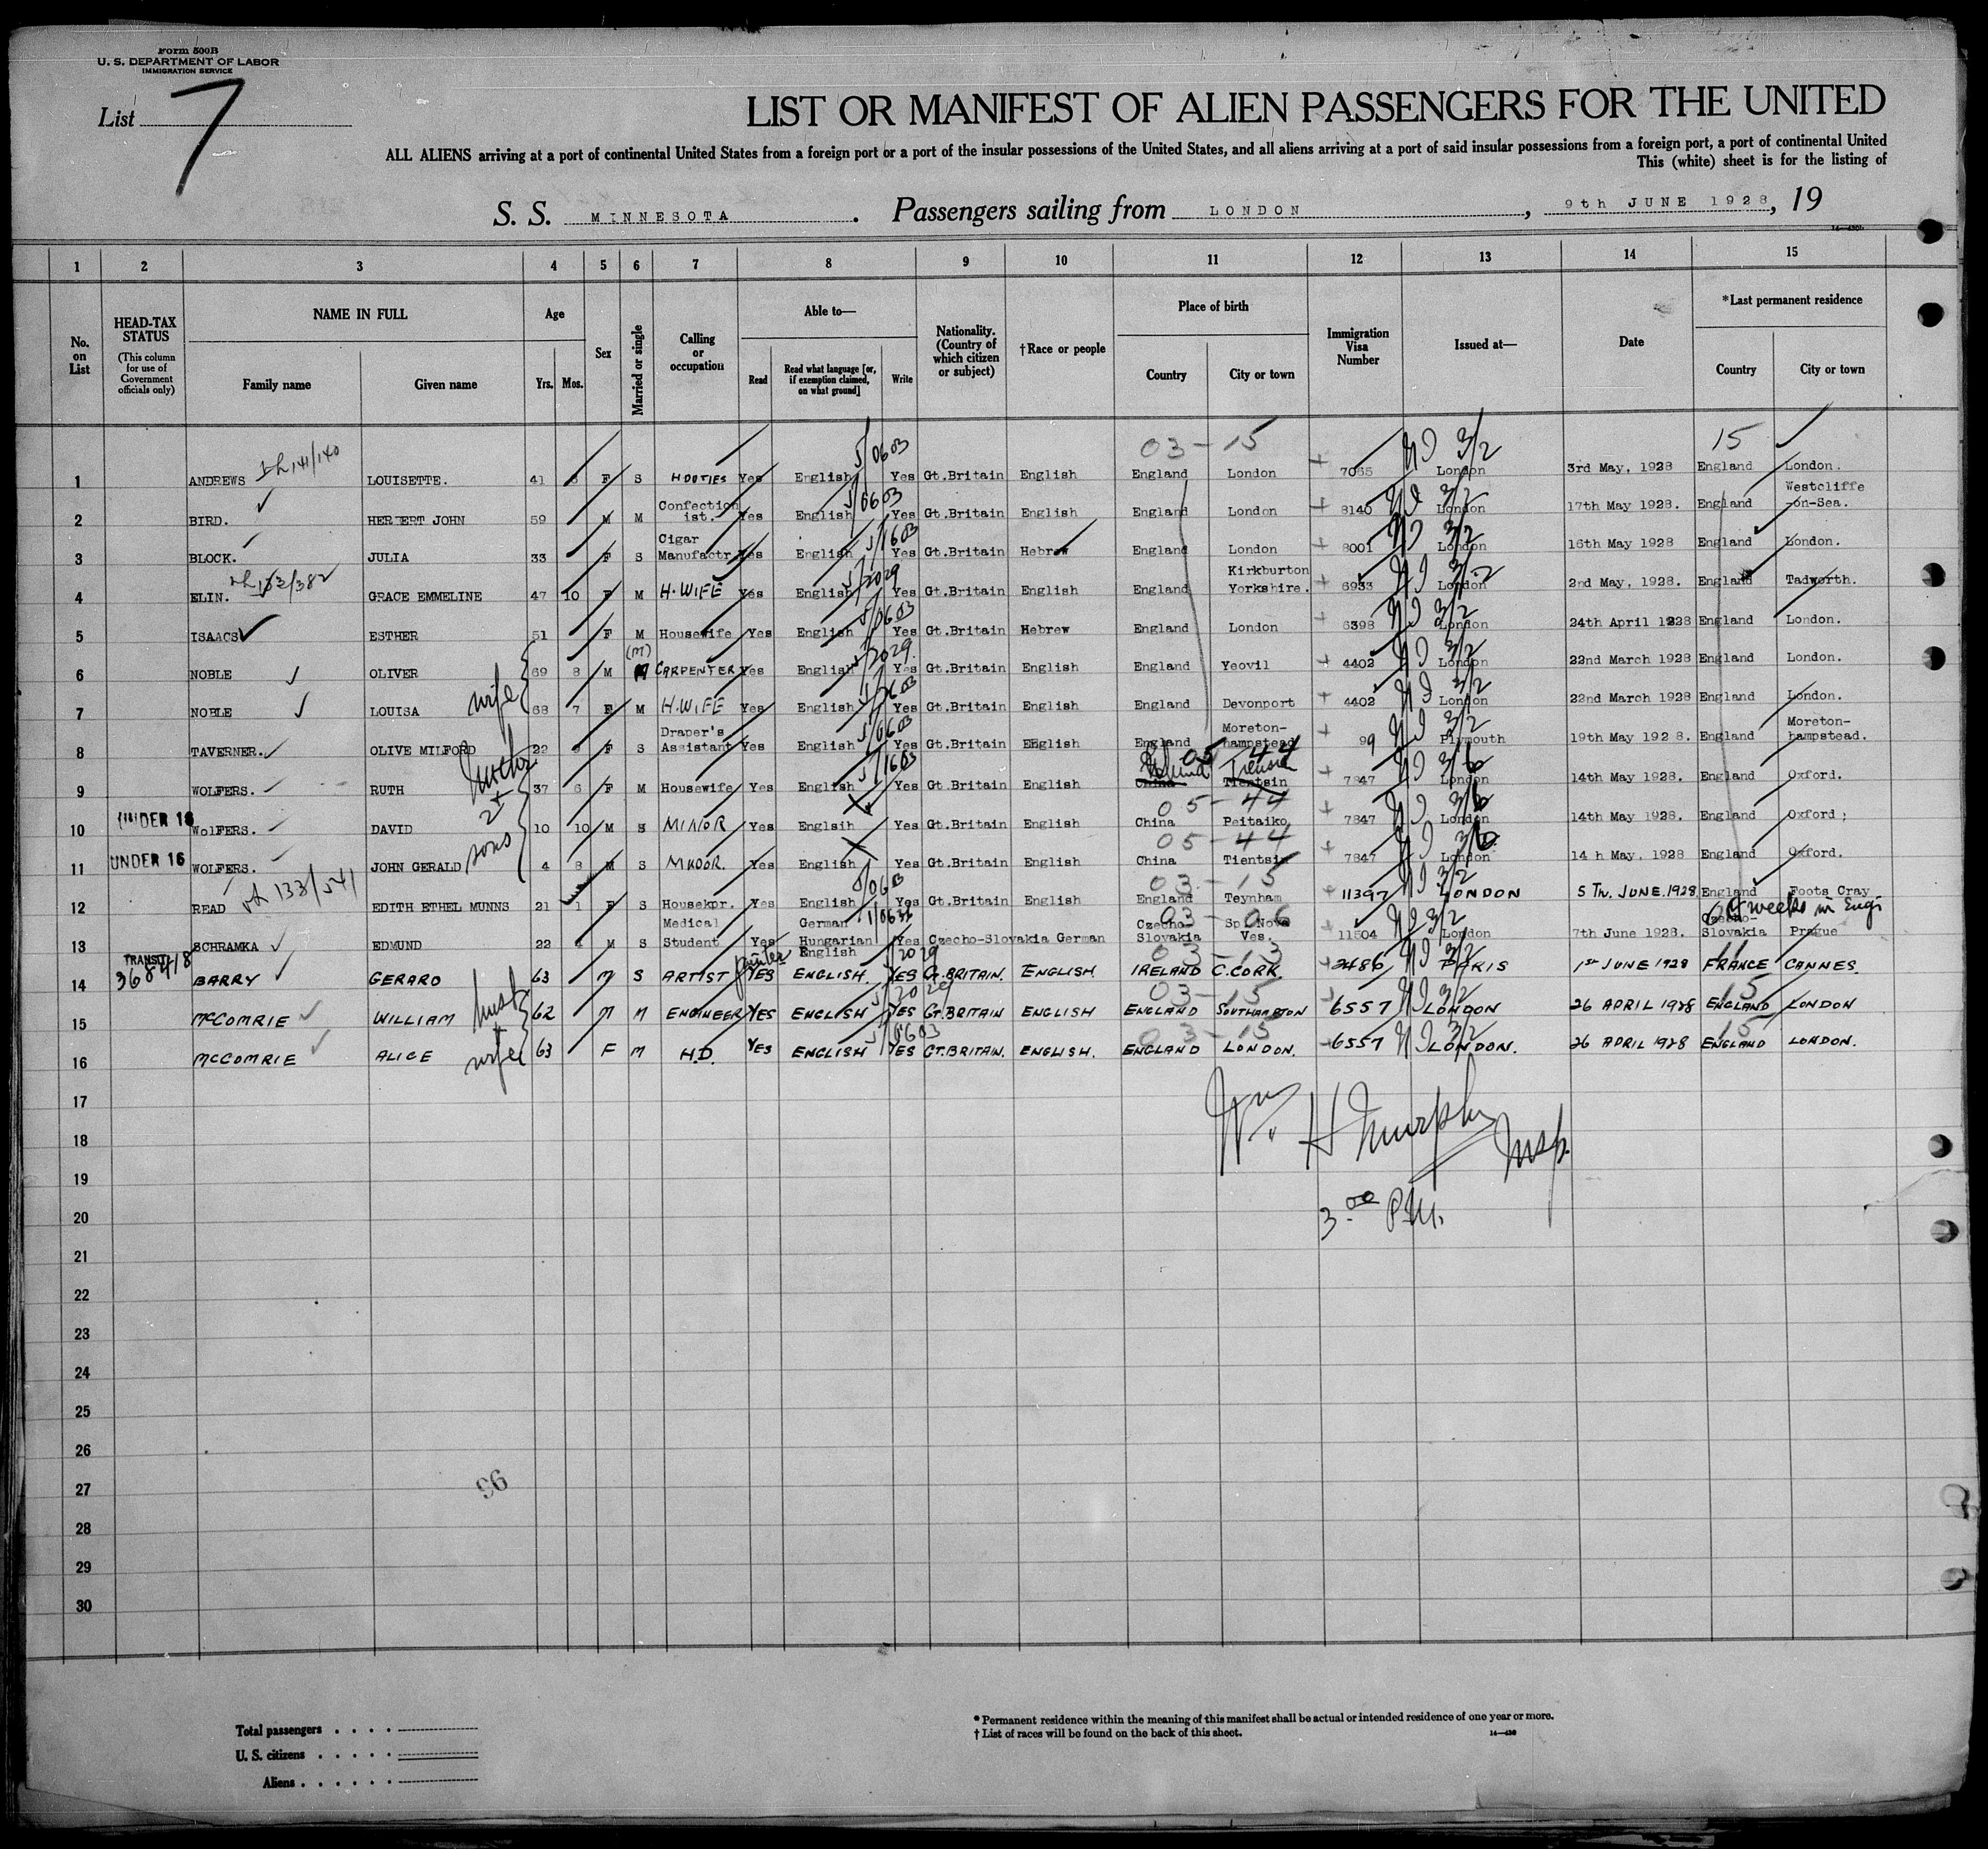 Form 500B
U. S. DEPARTMENT OF LABOR
IMMIGRATION SERVICE
List 7
LIST OR MANIFEST OF ALIEN PASSENGERS FOR THE UNITED
ALL ALIENS arriving at a port of continental United States from a foreign port or a port of the insular possessions of the United States, and all aliens arriving at a port of said insular possessions from a foreign port, a port of continental United
This (white) sheet is for the listing of
S. S. MINNESOTA. Passengers sailing from LONDON, 9th JUNE 1928, 19
1 2 3 4 5 6 7 8 9 10 11 12 13 14 15
No. on List
HEAD-TAX STATUS
(This column for use of Government officials only)
NAME IN FULL
Family name Given name
Age
Yrs. Mos.
Sex
Married or single
Calling or occupation
Able to—
Read
Read what language [or, if exemption claimed, on what ground]
Write
Nationality. (Country of which citizen or subject)
†Race or people
Place of birth
Country City or town
Immigration Visa Number
Issued at—
Date
*Last permanent residence
Country City or town
03-15 15
1 ANDREWS LOUISETTE. 41 F S Yes English Yes Gt.Britain English England London 7065 London 3rd May, 1928 England London.
2 BIRD. HERBERT JOHN 59 M M Confectionist. Yes English Yes Gt.Britain English England London 8140 London 17th May 1928. England Westcliffe-on-Sea.
3 BLOCK. JULIA 33 F S Cigar Manufactr. Yes English Yes Gt.Britain Hebrew England London 8001 London 16th May 1928 England London.
4 ELIN. GRACE EMMELINE 47 10 F M H.WIFE Yes English Yes Gt.Britain English England Kirkburton Yorkshire. 6933 London 2nd May, 1928. England Tadworth.
5 ISAACS ESTHER 51 F M Housewife Yes English Yes Gt.Britain Hebrew England London 6398 London 24th April 1928 England London.
6 NOBLE OLIVER 69 8 M (M) CARPENTER Yes English Yes Gt.Britain English England Yeovil 4402 London 22nd March 1928 England London.
7 NOBLE LOUISA wife 68 7 F M H.WIFE Yes English Yes Gt.Britain English England Devonport 4402 London 22nd March 1928 England London.
8 TAVERNER. OLIVE MILFORD 22 F S Draper's Assistant Yes English Yes Gt.Britain English England Moreton-hampstead 99 Plymouth 19th May 1928. England Moreton-hampstead.
9 WOLFERS. RUTH mother 37 6 F M Housewife Yes English Yes Gt.Britain English China Tientsin 7847 London 14th May 1928. England Oxford.
05-44
UNDER 16
10 WOLFERS. DAVID 2 10 10 M S MINOR Yes Englsih Yes Gt.Britain English China Peitaiko 7847 London 14th May 1928. England Oxford;
05-44
UNDER 16
11 WOLFERS. JOHN GERALD sons 4 8 M S Yes English Yes Gt.Britain English China Tientsin 7847 London 14 h May, 1928 England Oxford.
03-15
12 READ EDITH ETHEL MUNNS 21 1 F S Housekpr. Yes English Yes Gt.Britain English England Teynham 11397 LONDON 5 TH. JUNE.1928 England Foots Cray
weeks in Engl
03-06
13 SCHRAMKA EDMUND 22 4 M S Medical Student Yes German Hungarian English Yes Czecho-Slovakia German Czecho-Slovakia Sp. Nova Ves. 11504 London 7th June 1928. Czecho-Slovakia Prague
TRANSIT
368418
03-13
14 BARRY GERARD 63 M S ARTIST painter YES ENGLISH. YES GT.BRITAIN. ENGLISH. IRELAND C.CORK. 2486 PARIS 1ST JUNE 1928 FRANCE CANNES.
03-15
15 McCOMRIE WILLIAM husb + 62 M M ENGINEER YES ENGLISH YES GT.BRITAIN ENGLISH ENGLAND SOUTHAMPTON 6557 LONDON 26 APRIL 1928 ENGLAND LONDON
03-15
16 McCOMRIE ALICE wife 63 F M H.D. YES ENGLISH YES GT.BRITAIN. ENGLISH. ENGLAND LONDON. 6557 LONDON. 26 APRIL 1928 ENGLAND LONDON.
17
Wm. H Murphy Insp.
18
19
20
3.00 P.M.
21
22
23
24
25
26
27
96
28
29
30
Total passengers
U. S. citizens
Aliens
* Permanent residence within the meaning of this manifest shall be actual or intended residence of one year or more.
† List of races will be found on the back of this sheet.
14—430